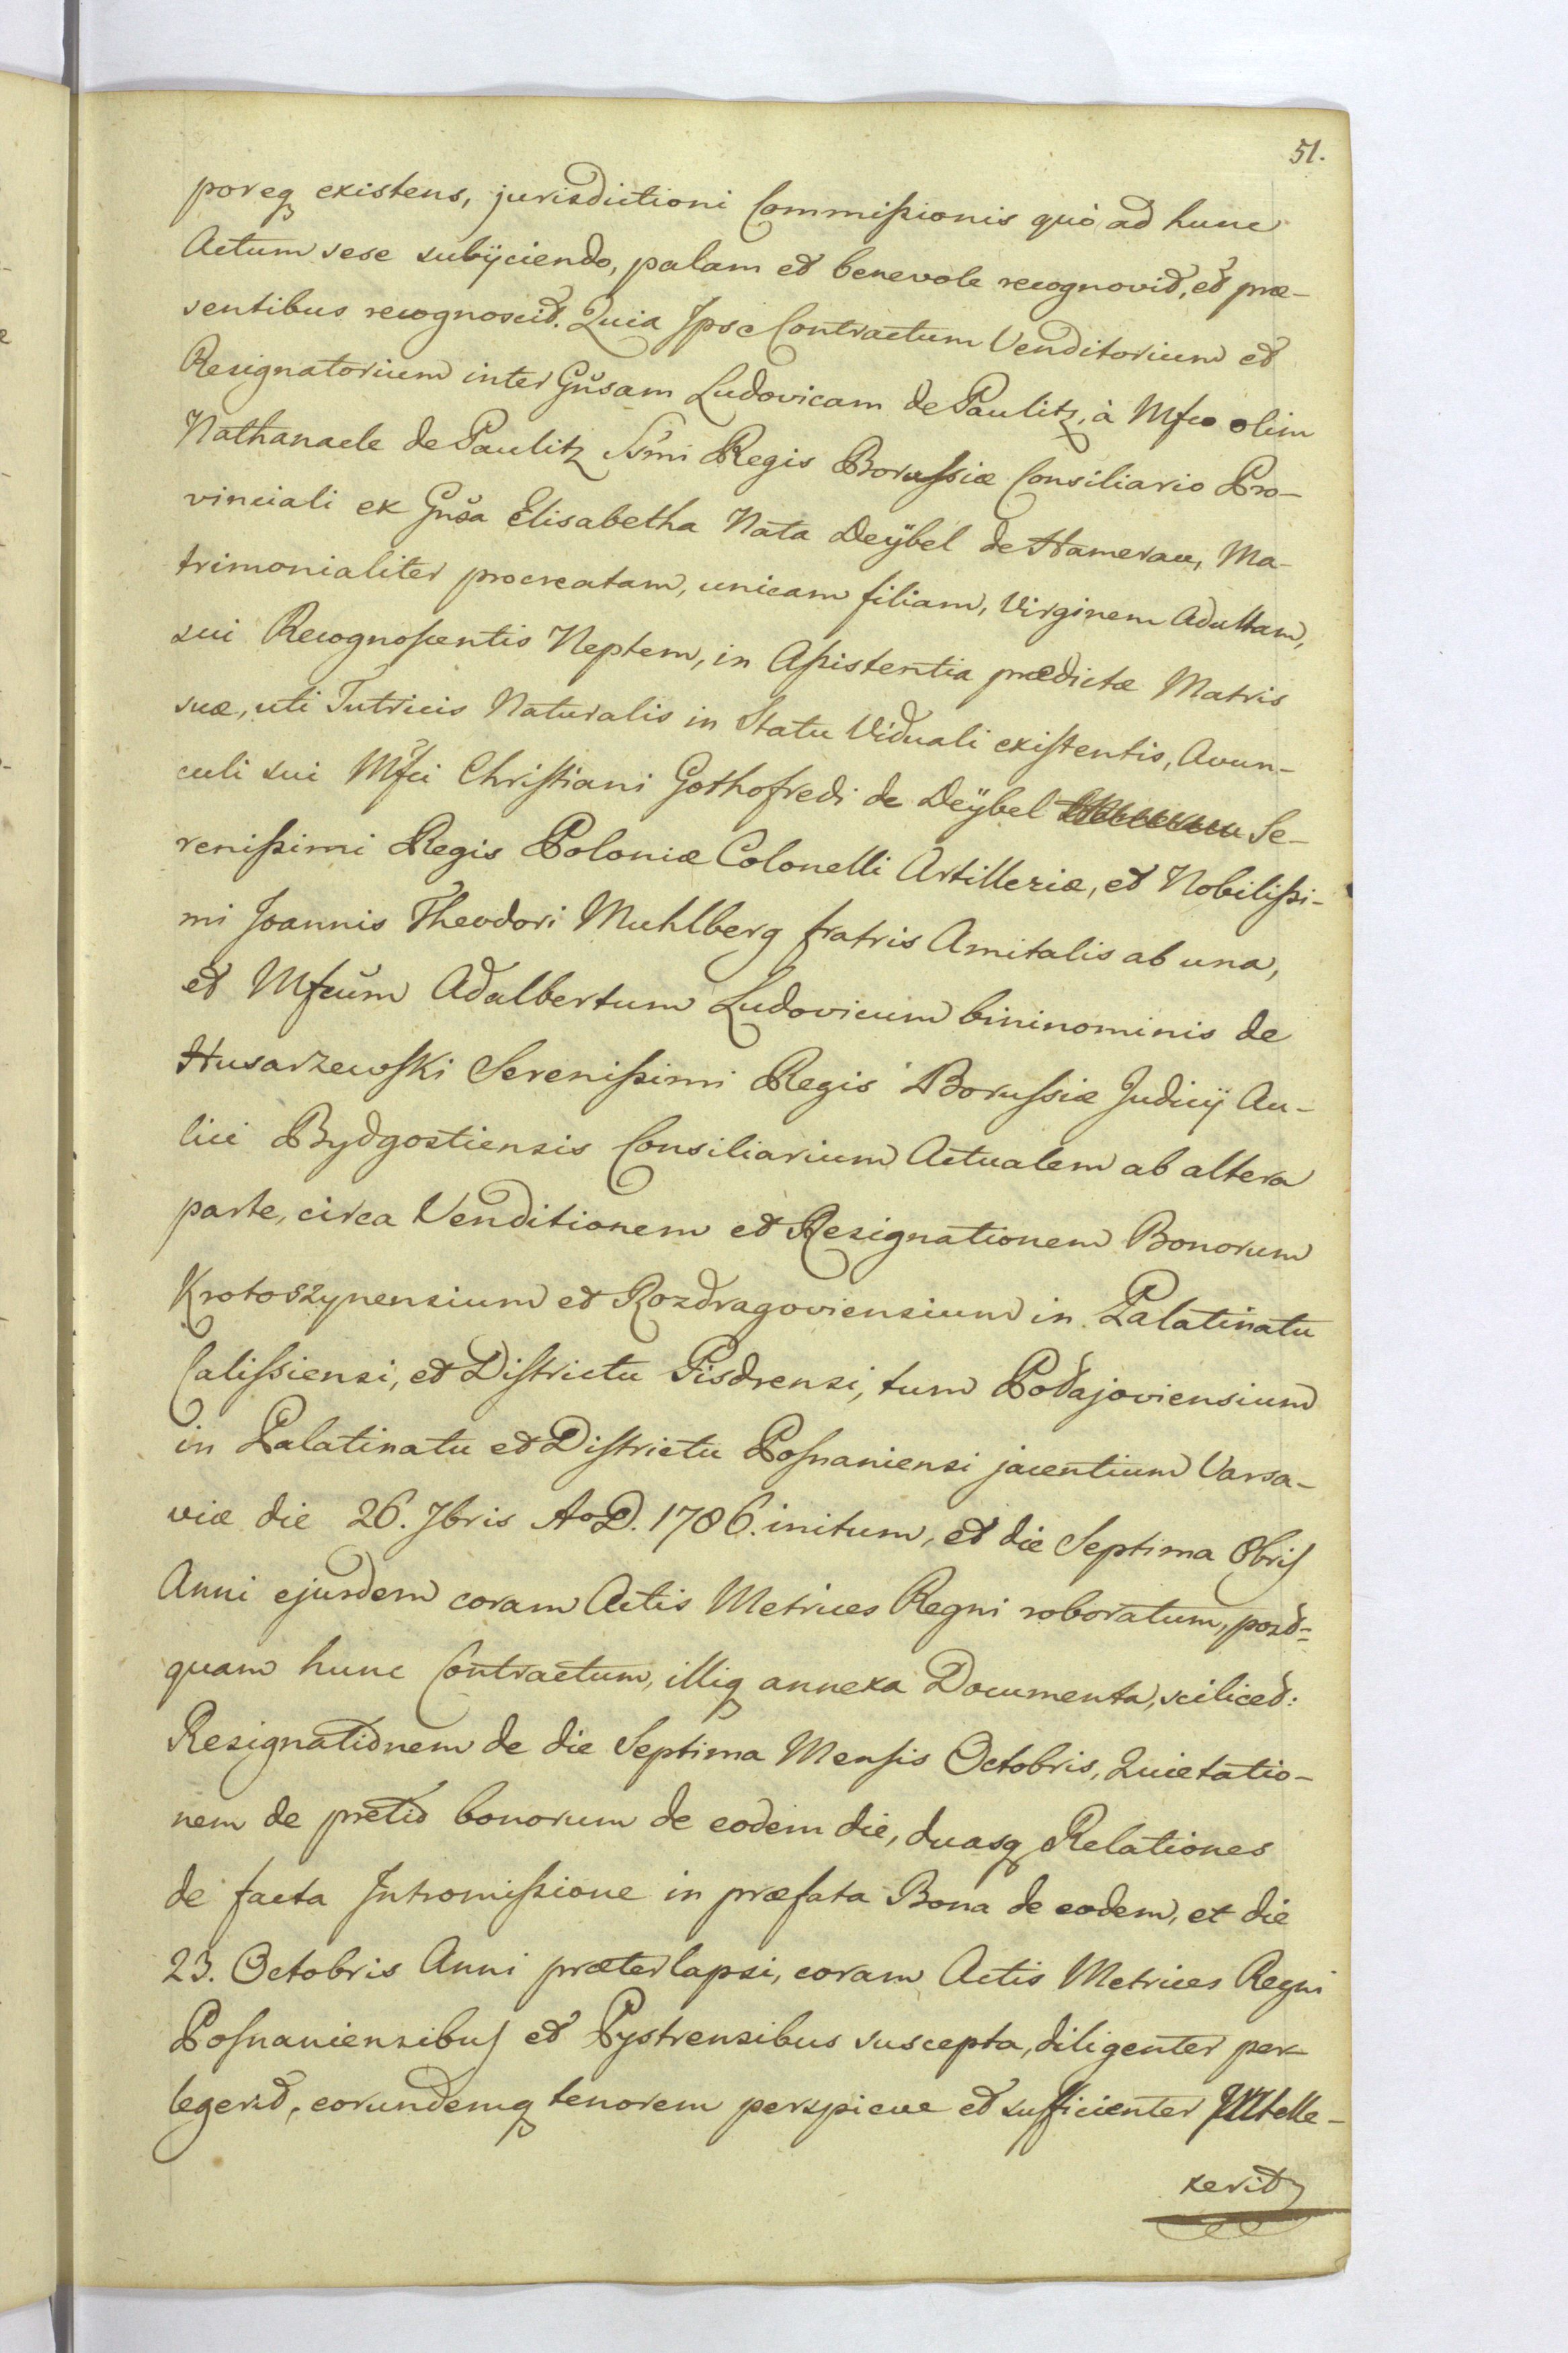 51.
poreq existens, jurisdictioni Commißionis quò ad hunc
Actum sese subijciendo, palam et benevole recognovit, et præ-
sentibus recognoscit. Quia Ipse Contractum Venditorium et
Resignatorium inter Gnsam Ludovicam de Paulitz, à Mfco olim
Nathanaele de Paulitz Ssmi Regis Borussiæ Consiliario Pro-
vinciali ex Gnsa Elisabetha Nata Deÿbel de Hamerau, Ma-
trimonialiter procreatam, unicam filiam, Virginem Adultam,
sui Recognoscentis Neptem, in Aßistentia prædictæ Matris
suæ, uti Tutricis Naturalis in Statu Viduali existentis, Avun-
culi sui Mfci Christiani Gothofredi de Deÿbel Se-
renißimi Regis Poloniæ Colonelli Artilleriæ, et Nobilißi-
mi Joannis Theodori Muhlberg fratris Amitalis ab una,
et Mfcum Adalbertum Ludovicum bininominis de
Husarzewski Serenißimi Regis Borussiæ Judicij Au-
lici Bydgostiensis Consiliarium Actualem ab altera
parte, circa Venditionem et Resignationem Bonorum
Krotoszynensium et Rozdragoviensium in Palatinatu
Calissiensi, et Districtu Pisdrensi, tum Podajoviensium
in Palatinatu et Districtu Posnaniensi jacentium Varsa-
viæ die 26. 7bris Ao D. 1786. initum, et die Septima 8bris
Anni ejusdem coram Actis Metrices Regni roboratum, post=
quam hunc Contractum, illiq annexa Documenta, scilicet:
Resignationem de die Septima Mensis Octobris, Quietatio-
nem de pretio bonorum de eodem die, duasq Relationes
de facta Intromißione in præfata Bona de eodem, et die
23. Octobris Anni præterlapsi, coram Actis Metrices Regni
Posnaniensibus et Pystrensibus suscepta, diligenter per-
legerit, eorundemq tenorem perspicue et sufficienter Intelle-
xerit